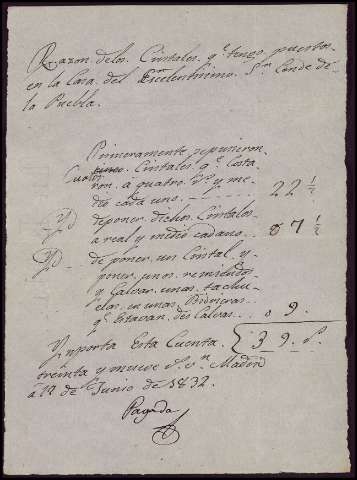 Razon de los Cristales qe. tengo puestos
en la Casa del Excelentisimo Sor. Conde de
la Puebla.
Primeramente se pusieron
Cristales qe. Costa
ron a quatro Rs. y me
dio cada uno 22 1/2
Yd de poner dichos Cristales
a real y medio cada uno 07 1/2
Yd de poner un Cristal y
poner unos remiendos
y Calvar unas tachue
elas en unas Bidrieras
qe. Estavan des Calvas 09.
Ymporta Esta Cuenta 39 r.
treinta y nueve Rs. vn. Madrid
a 12 de Junio de 1832.
Pagada